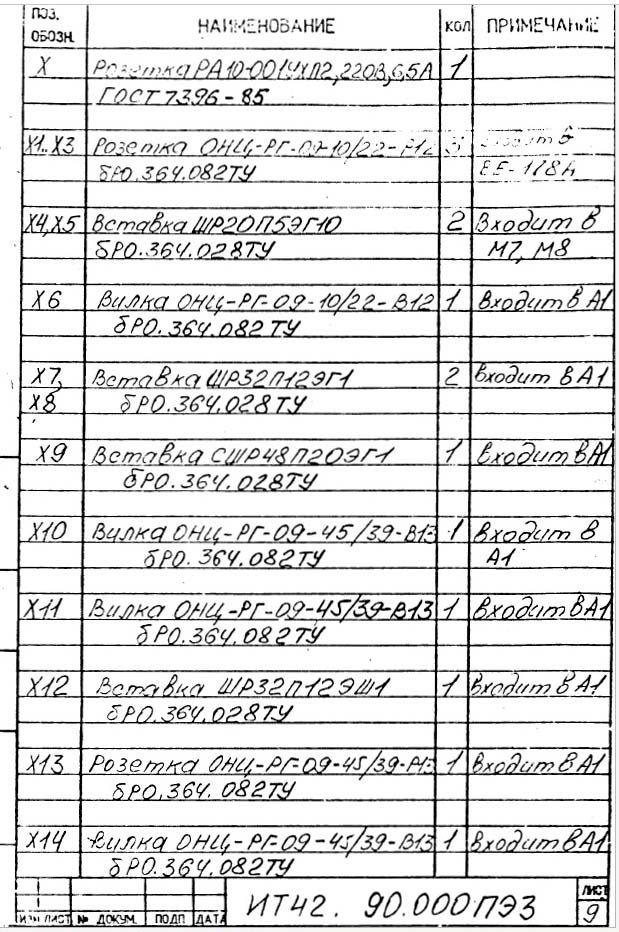 ПОЗ. ОБОЗН. НАИМЕНОВАНИЕ КОЛ ПРИМЕЧАНИЕ
X Розетка РА10-001УХЛ2,220В,6,5А 1
ГОСТ 7396-85
X1..X3 Розетка ОНЦ-РГ-09-10/22-Р12 3 Входит в
бР0.364.082ТУ ЕЕ-178А
X4,X5 Вставка ШР20П5ЭГ10 2 Входит в
бР0.364.028ТУ М7, М8
X6 Вилка ОНЦ-РГ-09-10/22-В12 1 Входит в А1
бР0.364.082ТУ
X7, Вставка ШР32П12ЭГ1 2 Входит в А1
X8 бР0.364.028ТУ
X9 Вставка СШР48П20ЭГ1 1 Входит в А1
бР0.364.028ТУ
X10 Вилка ОНЦ-РГ-09-45/39-В13 1 Входит в
бР0.364.082ТУ А1
X11 Вилка ОНЦ-РГ-09-45/39-В13 1 Входит в А1
бР0.364.082ТУ
X12 Вставка ШР32П12ЭШ1 1 Входит в А1
бР0.364.028ТУ
X13 Розетка ОНЦ-РГ-09-45/39-Р13 1 Входит в А1
бР0.364.082ТУ
X14 Вилка ОНЦ-РГ-09-45/39-В13 1 Входит в А1
бР0.364.082ТУ
ИЗМ ЛИСТ № ДОКУМ. ПОДП ДАТА ИТ42. 90.000ПЭ3 ЛИСТ
9